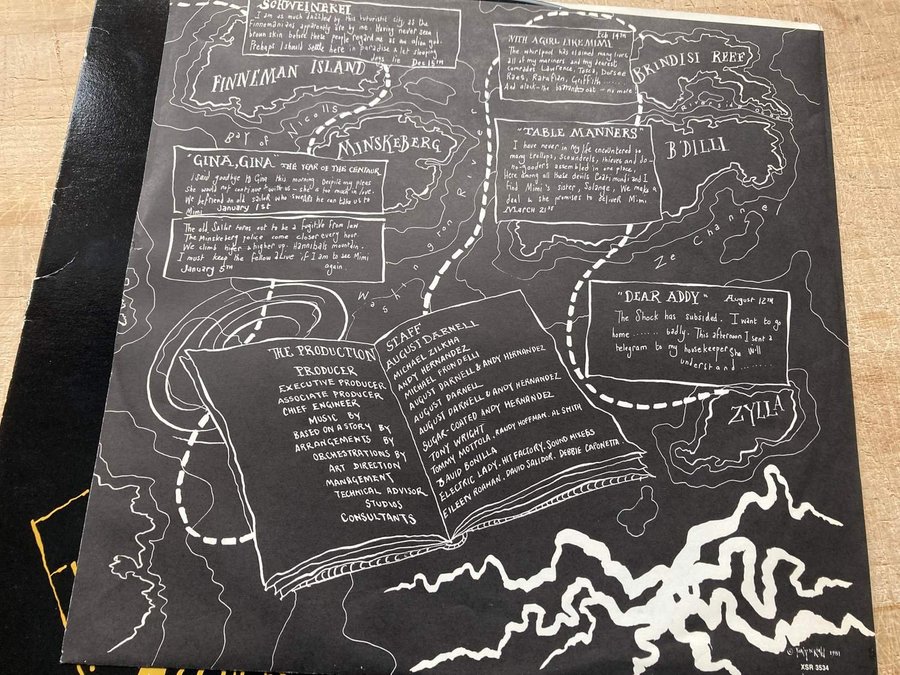 SCHWEINEREI
I am as much dazzled by this futuristic city as the
Finnemanians apparently are by me. Having never seen
brown skin before these people regard me as an alien god.
Perhaps I should settle here in paradise & let sleeping
dogs lie Dec 15TH
FINNEMAN ISLAND
Bay of Nicolls
MINSKEBERG
"GINA, GINA" THE YEAR OF THE CENTAUR
I said goodbye to Gina this morning. Despite my pleas
She would not continue with us - she's too much in love.
We befriend an old sailor who swears he can take us to
Mimi January 1st
The old Sailor turns out to be a fugitive from law
The Minskeberg police come closer every hour
We climb higher & higher up Hannibals mountain.
I must keep the fellow alive if I am to see Mimi
January 5TH again.
Washington River
Feb 14TH
WITH A GIRL LIKE MIMI
The whirlpool has claimed many lives
all of my mariners and my dearest
comrades Lawrence, Tosca, Dorsee
Raes, Griffith
And alack - the no more
BRINDISI REEF
"TABLE MANNERS"
I have never in my life encountered so
many trollops, scoundrels, thieves and do-
no-gooders assembled in one place.
Here among all these devils Coati mundi and I
Find Mimi's sister, Solange, We make a
deal & she promises to deliver Mimi
MARCH 21st
B'DILLI
Ze Channel
"DEAR ADDY" August 12TH
The Shock has subsided. I want to go
home ....... badly. This afternoon I sent a
telegram to my housekeeper She will
understand ........
ZYLLA
THE PRODUCTION
PRODUCER
EXECUTIVE PRODUCER
ASSOCIATE PRODUCER
CHIEF ENGINEER
MUSIC BY
BASED ON A STORY BY
ARRANGEMENTS BY
ORCHESTRATIONS BY
ART DIRECTION
MANAGEMENT
TECHNICAL ADVISOR
STUDIOS
CONSULTANTS
STAFF
AUGUST DARNELL
MICHAEL ZILKHA
ANDY HERNANDEZ
MICHAEL FRONDELLI
AUGUST DARNELL & ANDY HERNANDEZ
AUGUST DARNELL
AUGUST DARNELL & ANDY HERNANDEZ
SUGAR-COATED ANDY HERNANDEZ
TONY WRIGHT
TOMMY MOTTOLA, RANDY HOFFMAN, AL SMITH
DAVID BONILLA
ELECTRIC LADY, HIT FACTORY, SOUND MIXERS
EILEEN ROAHAN, DAVID SALIDOR, DEBBIE CAPONETTA
1981
XSR 3534